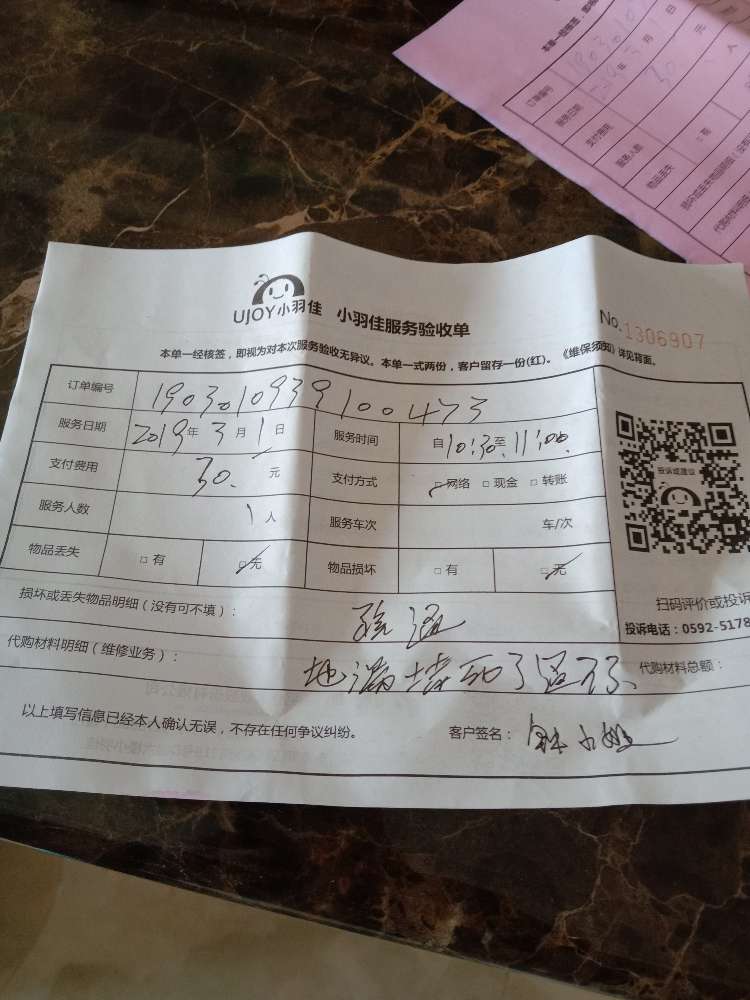 UJOY小羽佳 小羽佳服务验收单
No.1306907
本单一经核签，即视为对本次服务验收无异议。本单一式两份，客户留存一份(红)。《维保须知》详见背面。
订单编号 1903010939100473
服务日期 2019年3月1日 服务时间 自10:30至11:00
支付费用 30.元 支付方式 □网络 □现金 □转账
服务人数 1人 服务车次 车/次
物品丢失 □有 □无 物品损坏 □有 □无
投诉或建议
扫码评价或投诉
投诉电话：0592-5178
损坏或丢失物品明细（没有可不填）： 疏通
代购材料明细（维修业务）： 地漏堵死了通不了 代购材料总额：
以上填写信息已经本人确认无误，不存在任何争议纠纷。 客户签名： 林小姐
订单编号
服务日期
支付费用 30
服务人数
物品丢失 □有